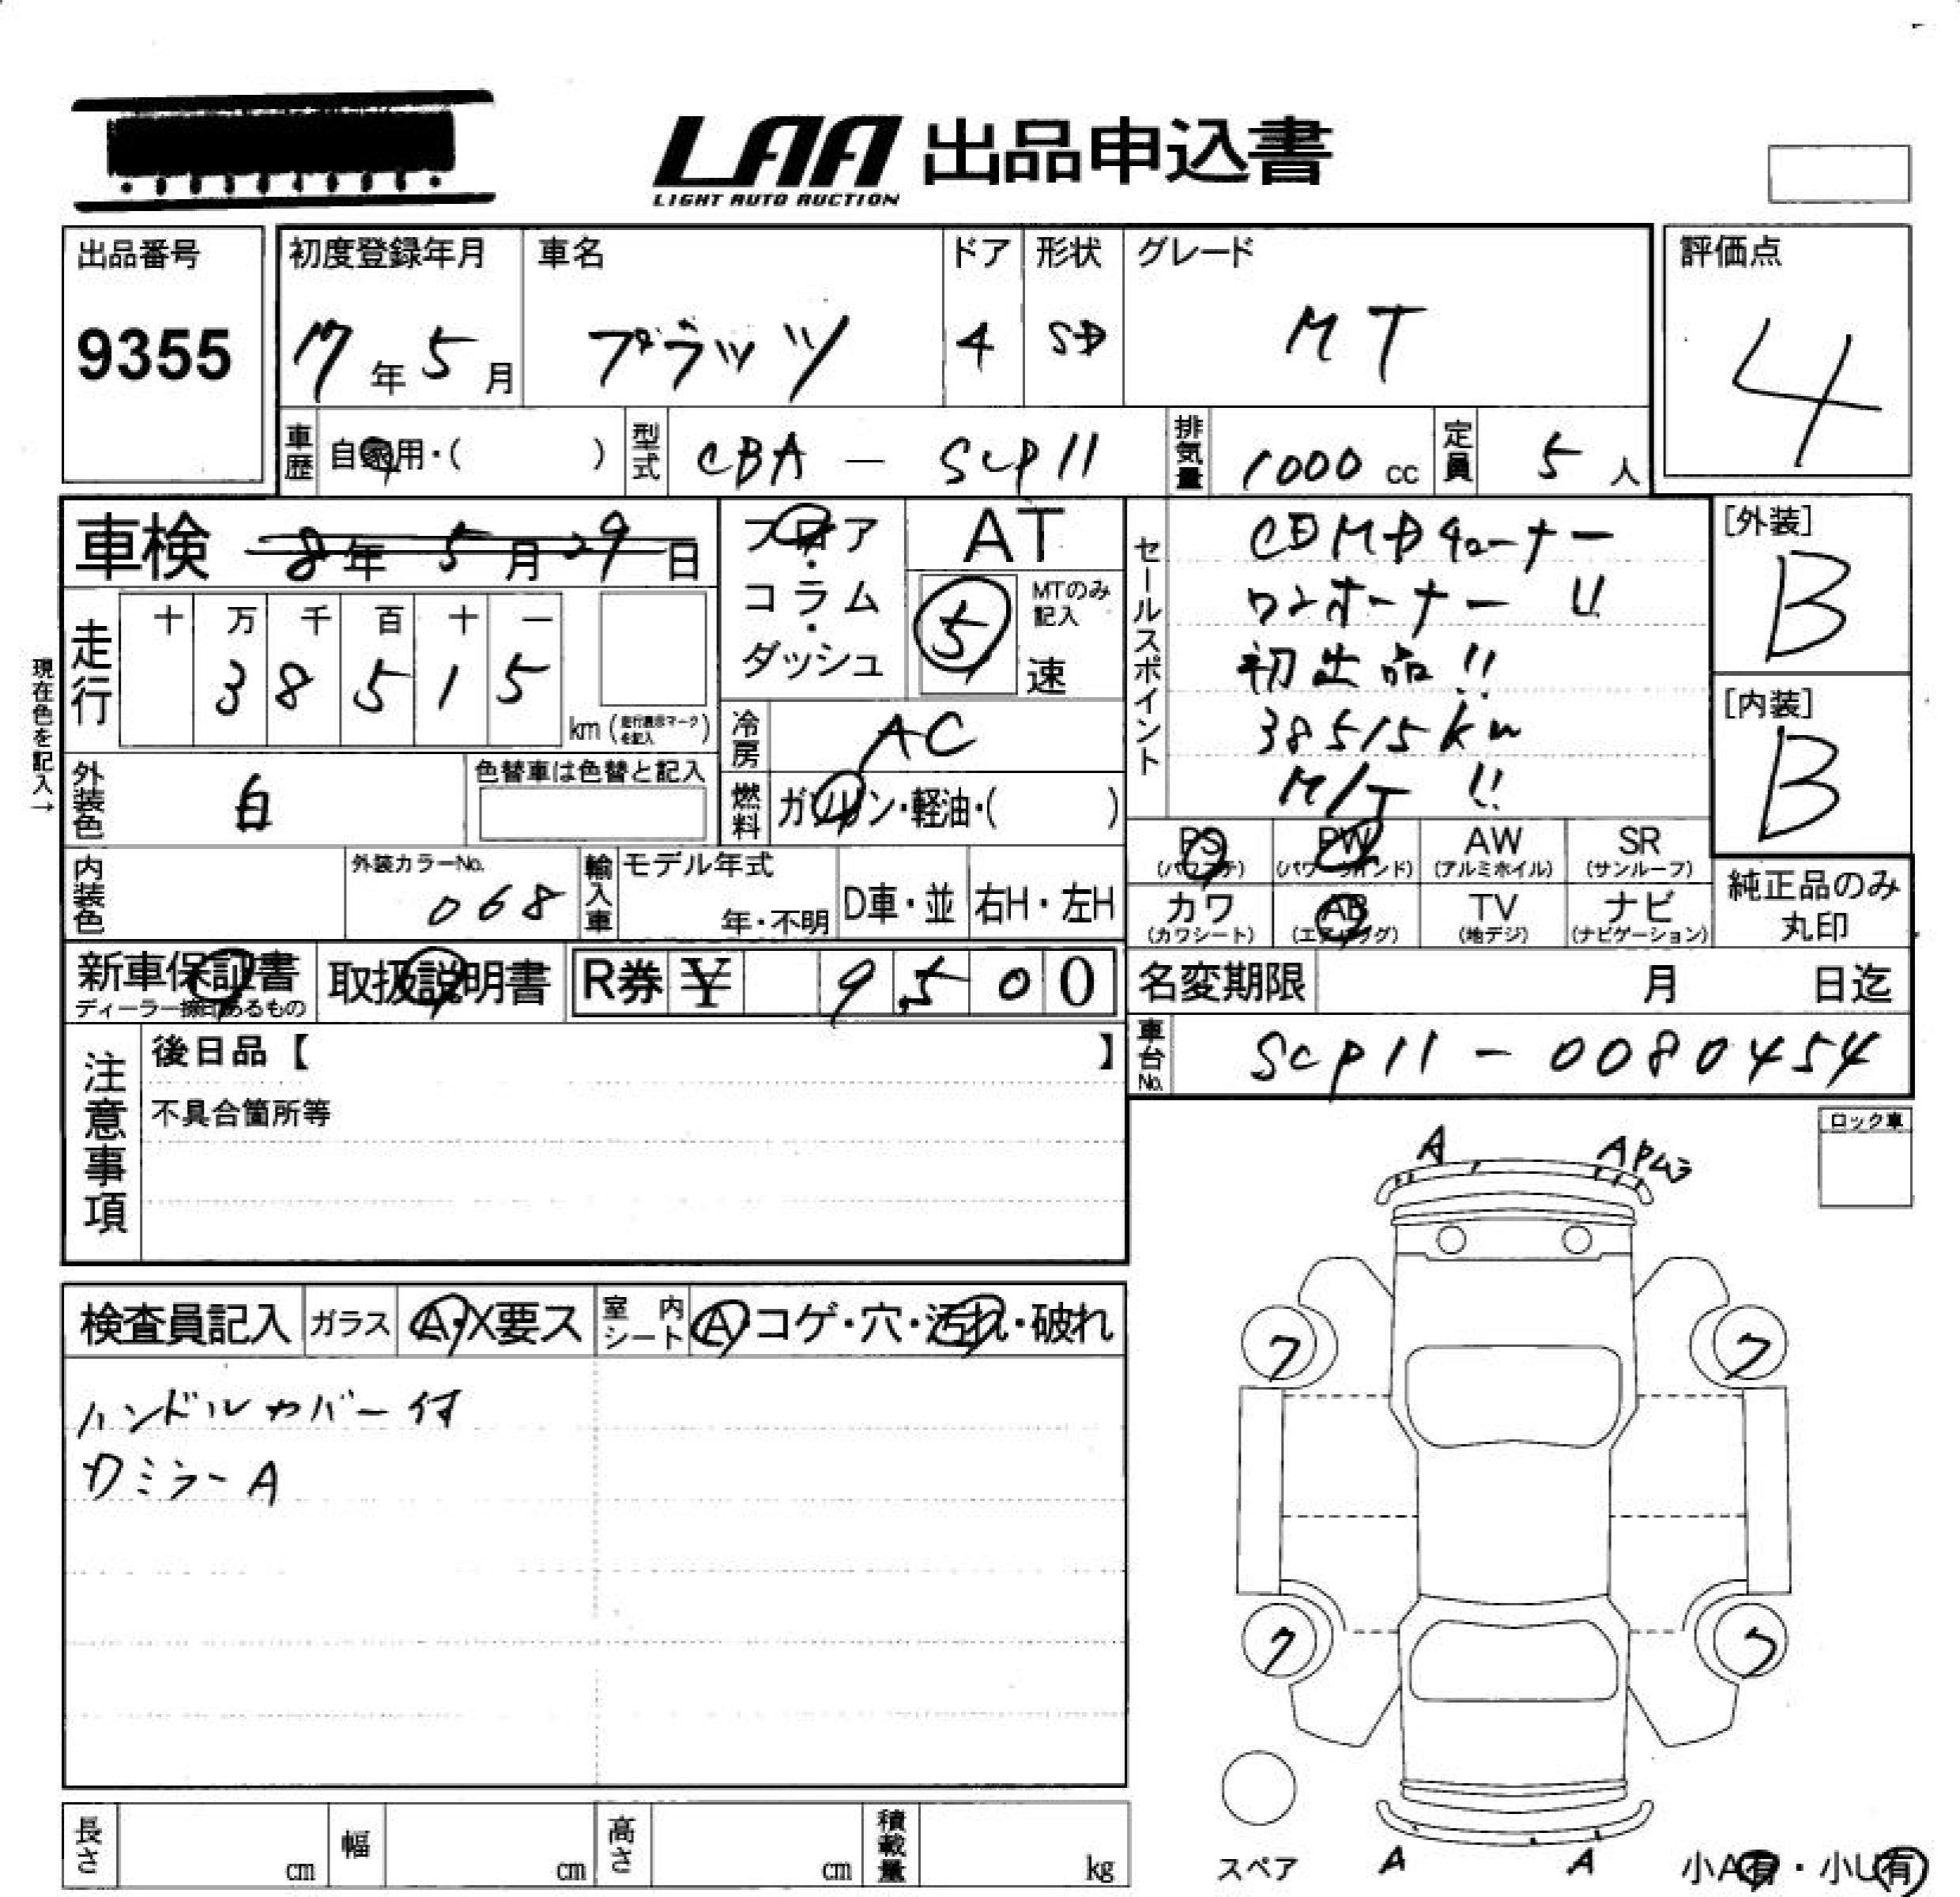 LAA 出品申込書
LIGHT AUTO AUCTION
出品番号
9355
初度登録年月
17年5月
車名
プラッツ
ドア
4
形状
SD
グレード
MT
評価点
4
車歴
自家用・( )
型式
CBA - SCP11
排気量
1000 cc
定員
5 人
車検 8年 5月 29日
フロア・コラム・ダッシュ
AT
5
MTのみ記入
速
セールスポイント
CDMDチューナー
ワンオーナー U
初出品!!
38515km
M/T !!
[外装]
B
[内装]
B
現在色を記入→
走行
十 万 千 百 十 一
3 8 5 1 5
km (走行表示マークを記入)
冷房
AC
外装色
白
色替車は色替と記入
燃料
ガソリン・軽油・( )
PS
(パワステ)
PW
(パワーウインド)
AW
(アルミホイル)
SR
(サンルーフ)
カワ
(カワシート)
AB
(エアバッグ)
TV
(地デジ)
ナビ
(ナビゲーション)
純正品のみ
丸印
内装色
外装カラーNo.
068
輸入車
モデル年式
年・不明
D車・並
右H・左H
新車保証書
ディーラー捺印あるもの
取扱説明書
R券 ¥ 9,500
名変期限 月 日迄
車台No.
SCP11-0080454
注意事項
後日品【 】
不具合箇所等
ロック車
A
A
検査員記入
ガラス
A・X要ス
室内シート
A・コゲ・穴・汚れ・破れ
ハンドルカバー付
カミラーA
フ
フ
フ
フ
スペア
A
A
小A有・小U有
長さ
cm
幅
cm
高さ
cm
積載量
kg